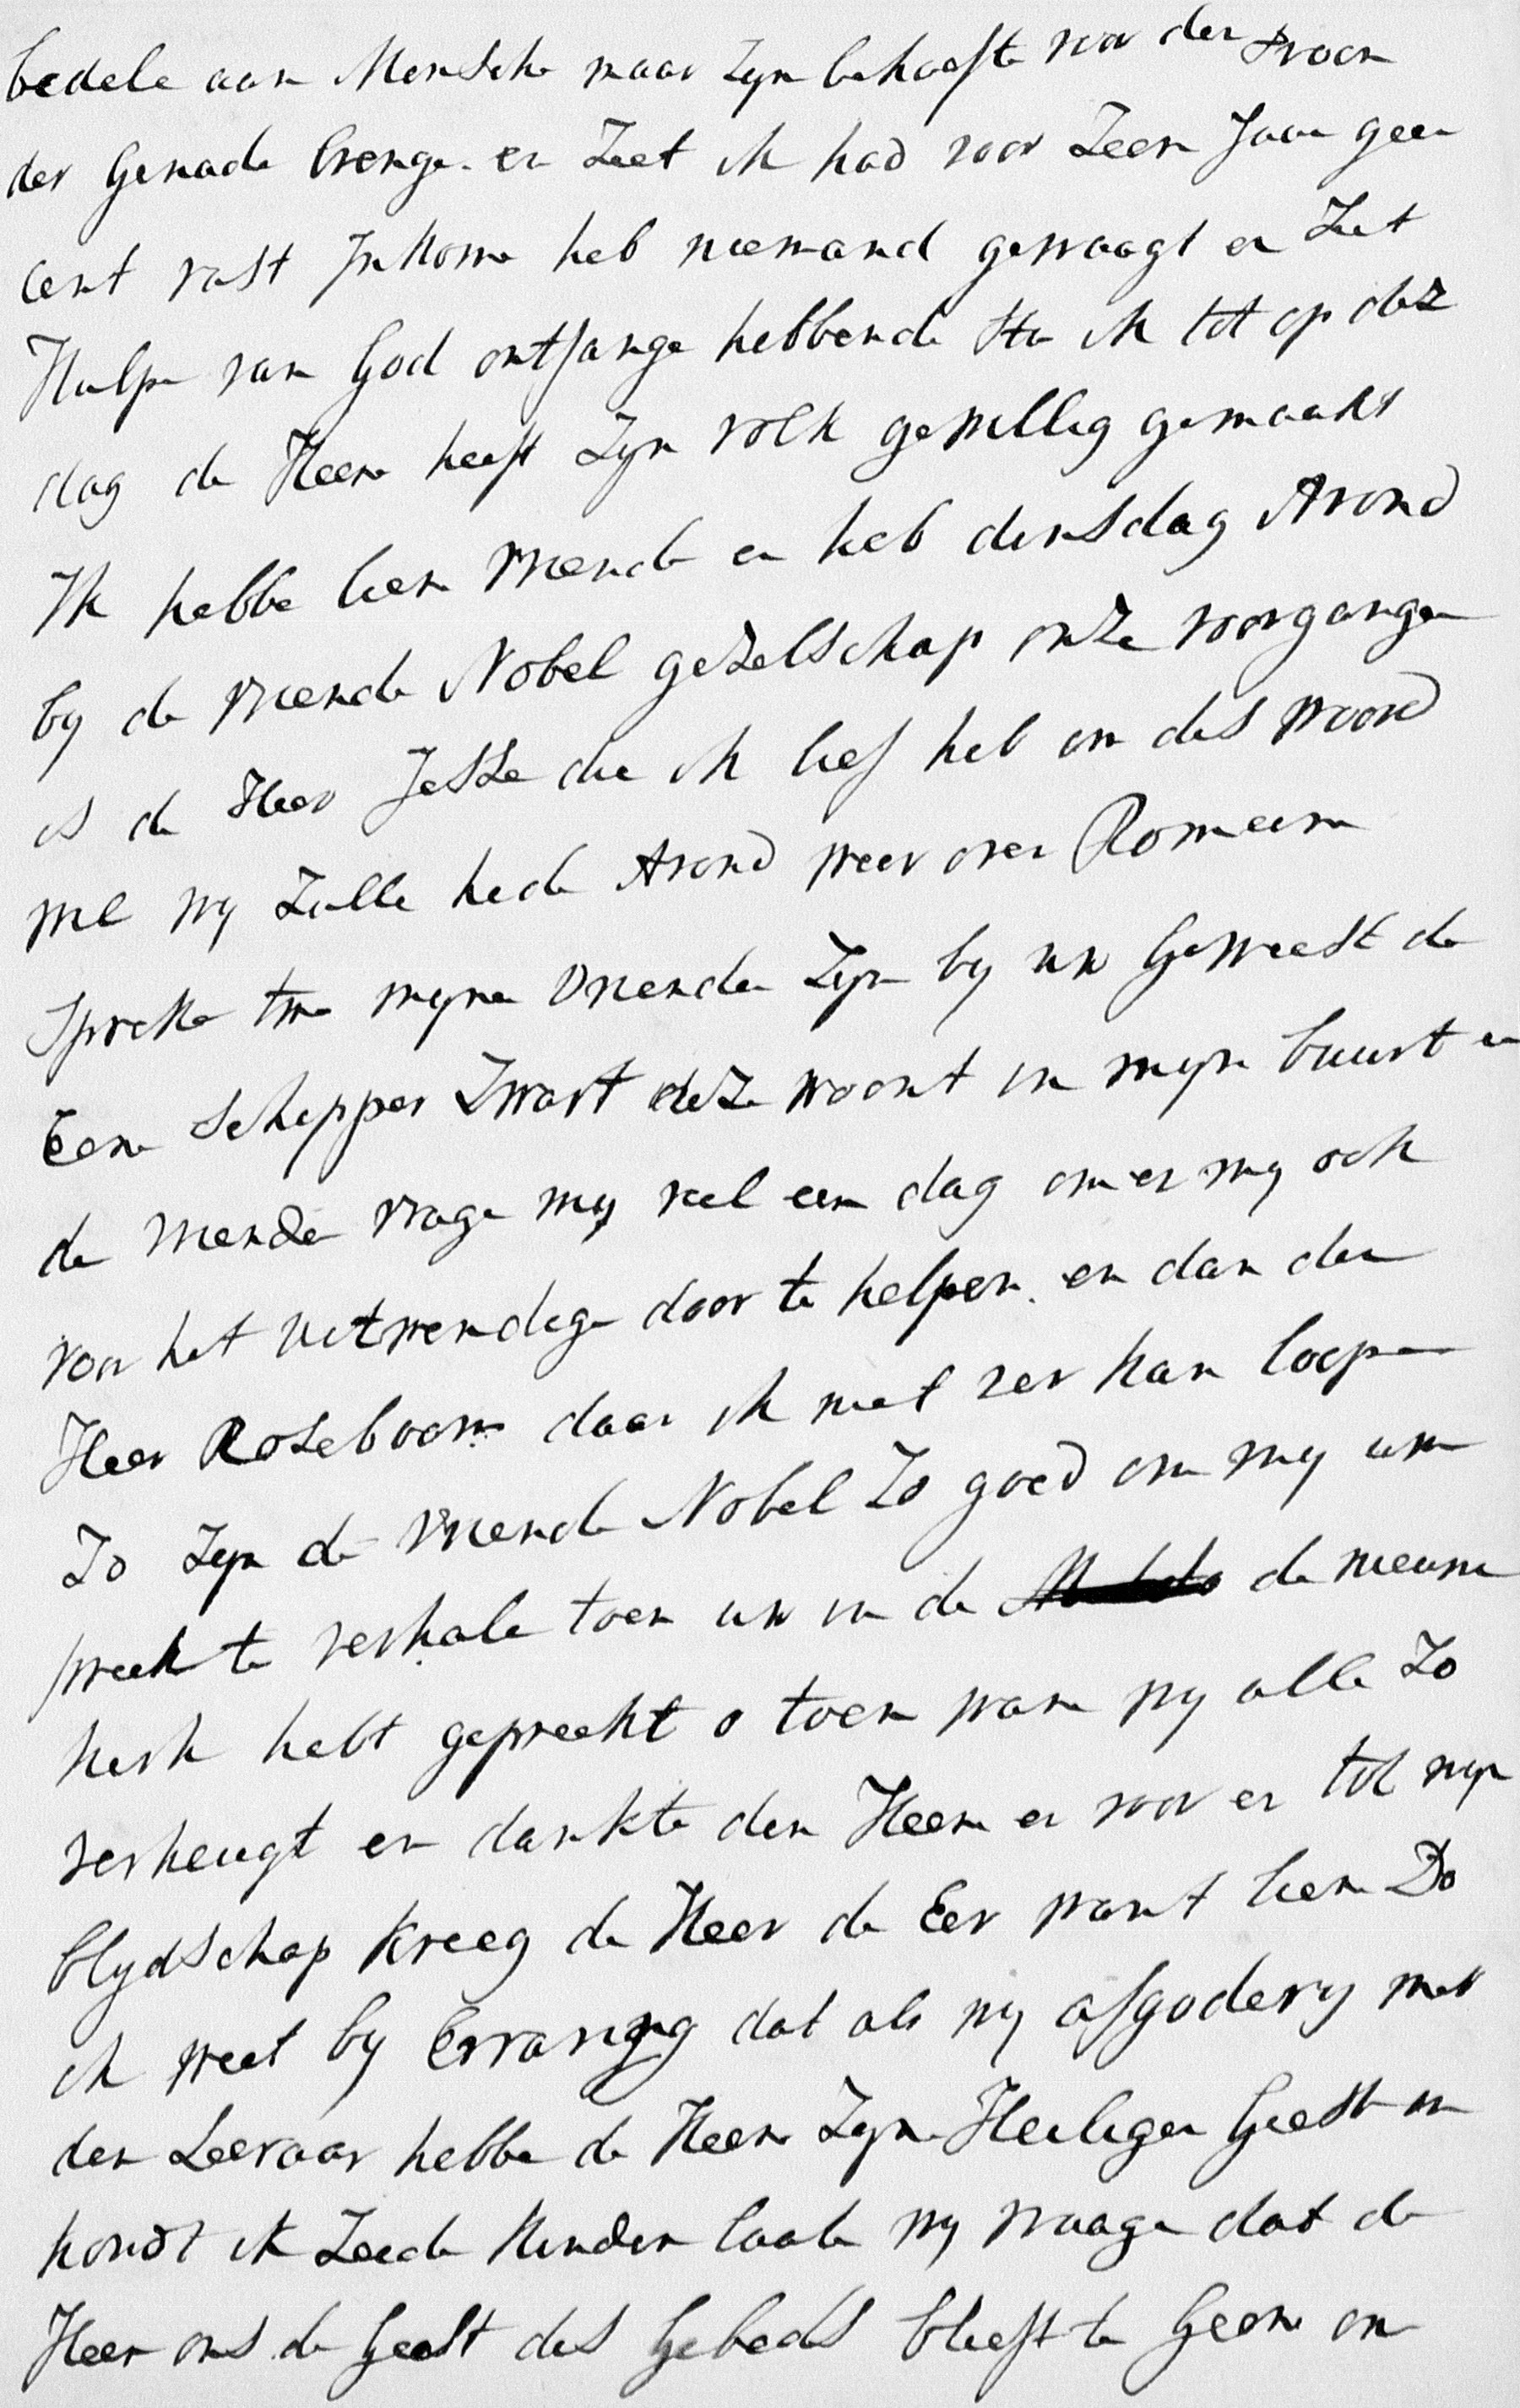 bedele aan Mensche maar zyn behoefte voor den troon
der Genade brenge. en Ziet ik had voor Zeen Jaar geen
Cent vast Inkome heb niemand gevraagt en Ziet
Hulpe van God ontfange hebbende sta ik tot op dez
dag de Heere heeft Zyn volk gewillig gemaakt
Ik hebbe lieve vriende en heb dinsdag Avond
by de vriende Nobel gezelschap onze voorganger
is de Heer Jesse die ik lief heb om des woord
wil wy Zulle hede Avond weer over Romeine
Spreke twe myne vriende Zyn by uw Geweest de
Eene Schipper Zwart deze woont in myn buurt en
de vriende vrage my veel een dag om er my ook
voor het uitwendige door te helpen. en dan den
Heer Roseboom daar ik niet ver kan loope
Zo Zyn de vriende Nobel Zo goed om my uw
preek te verhale toen uw in de de nieuwe
kerk hebt gepreekt o toen ware wy alle Zo
verheugt en dankte den Heere er voor en tot myn
blydschap kreeg de Heer de Eer want lieve Do
ik weet by Ervaring dat als wy afgodery met
den Leeraar hebbe de Heere Zyn Heilige Geest in
houdt ik Zeide kinderen laate wy vraage dat de
Heer ons de Geest des Gebeds blieft te Geeve om